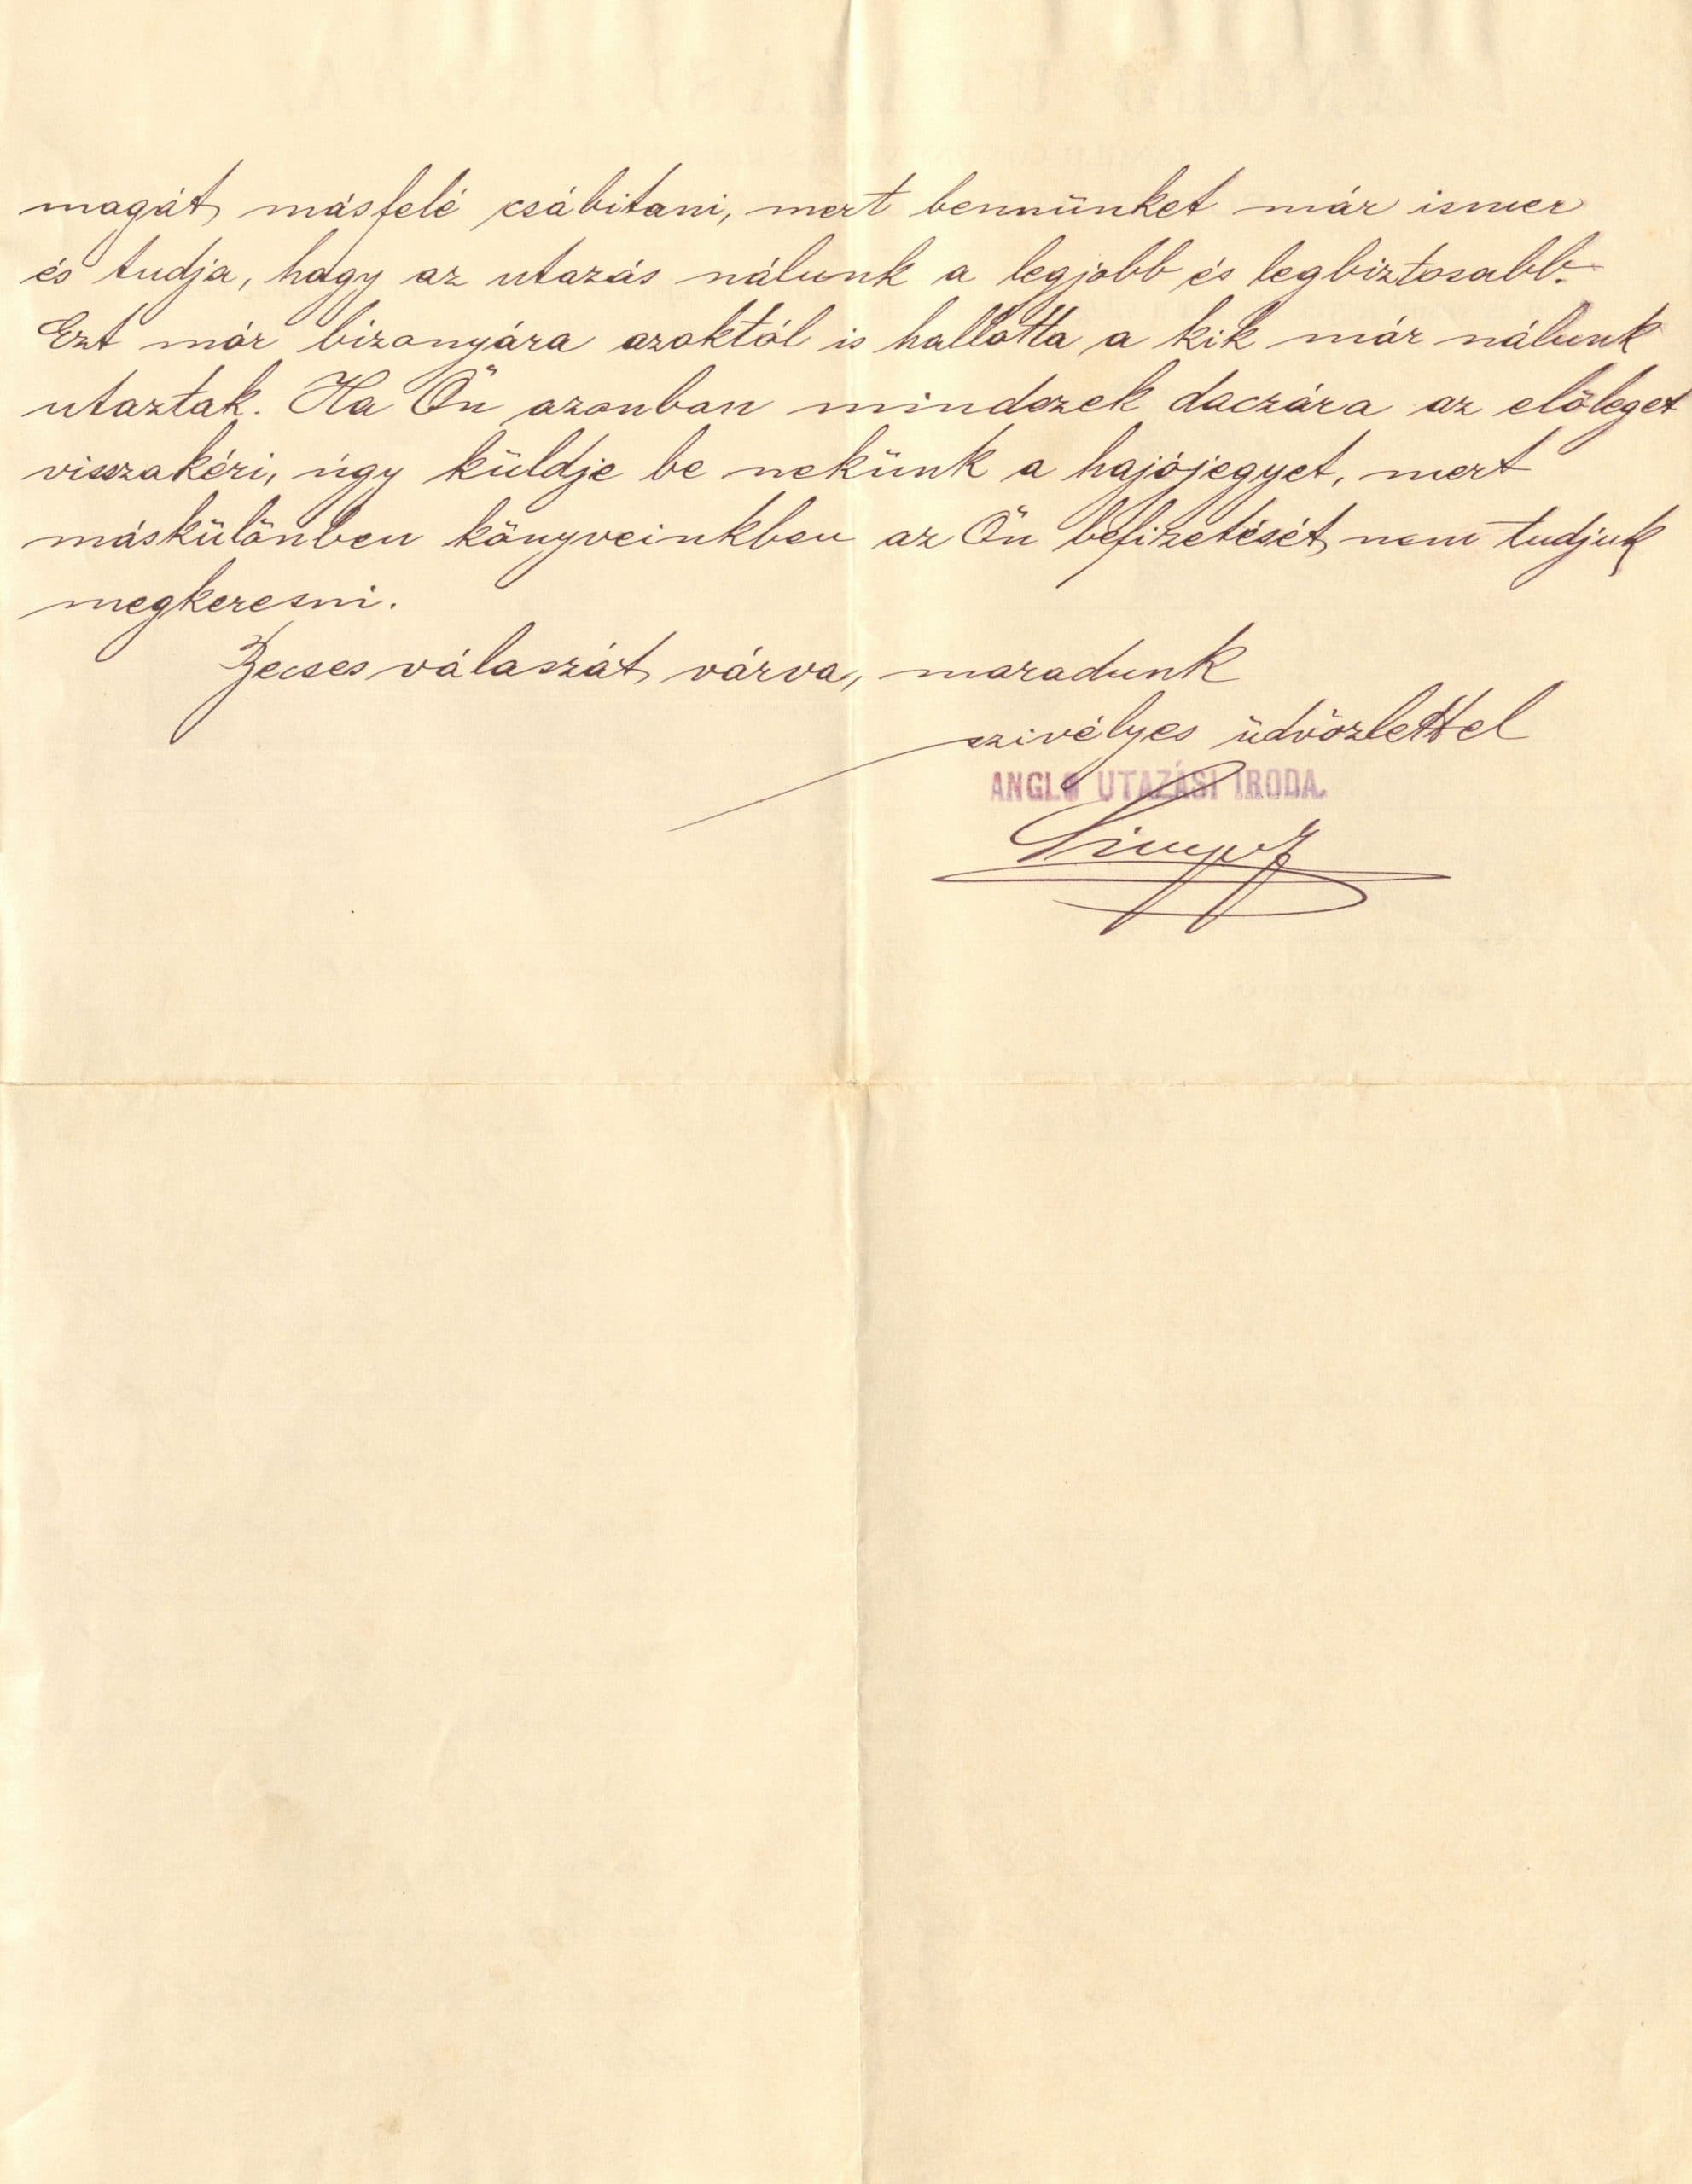 magát másfelé csábitani, mert bennünket már ismer
és tudja, hogy az utazás nálunk a legjobb és legbiztosabb.
Ezt már bizonyára azoktól is hallotta a kik már nálunk
utaztak. Ha Ön azonban mindezek daczára az előleget
visszakéri, úgy küldje be nekünk a hajójegyet, mert
máskülönben könyveinkben az Ön befizetését nem tudjuk
megkeresni.
Becses válaszát várva, maradunk
szivélyes üdvözlettel
ANGLO UTAZÁSI IRODA.